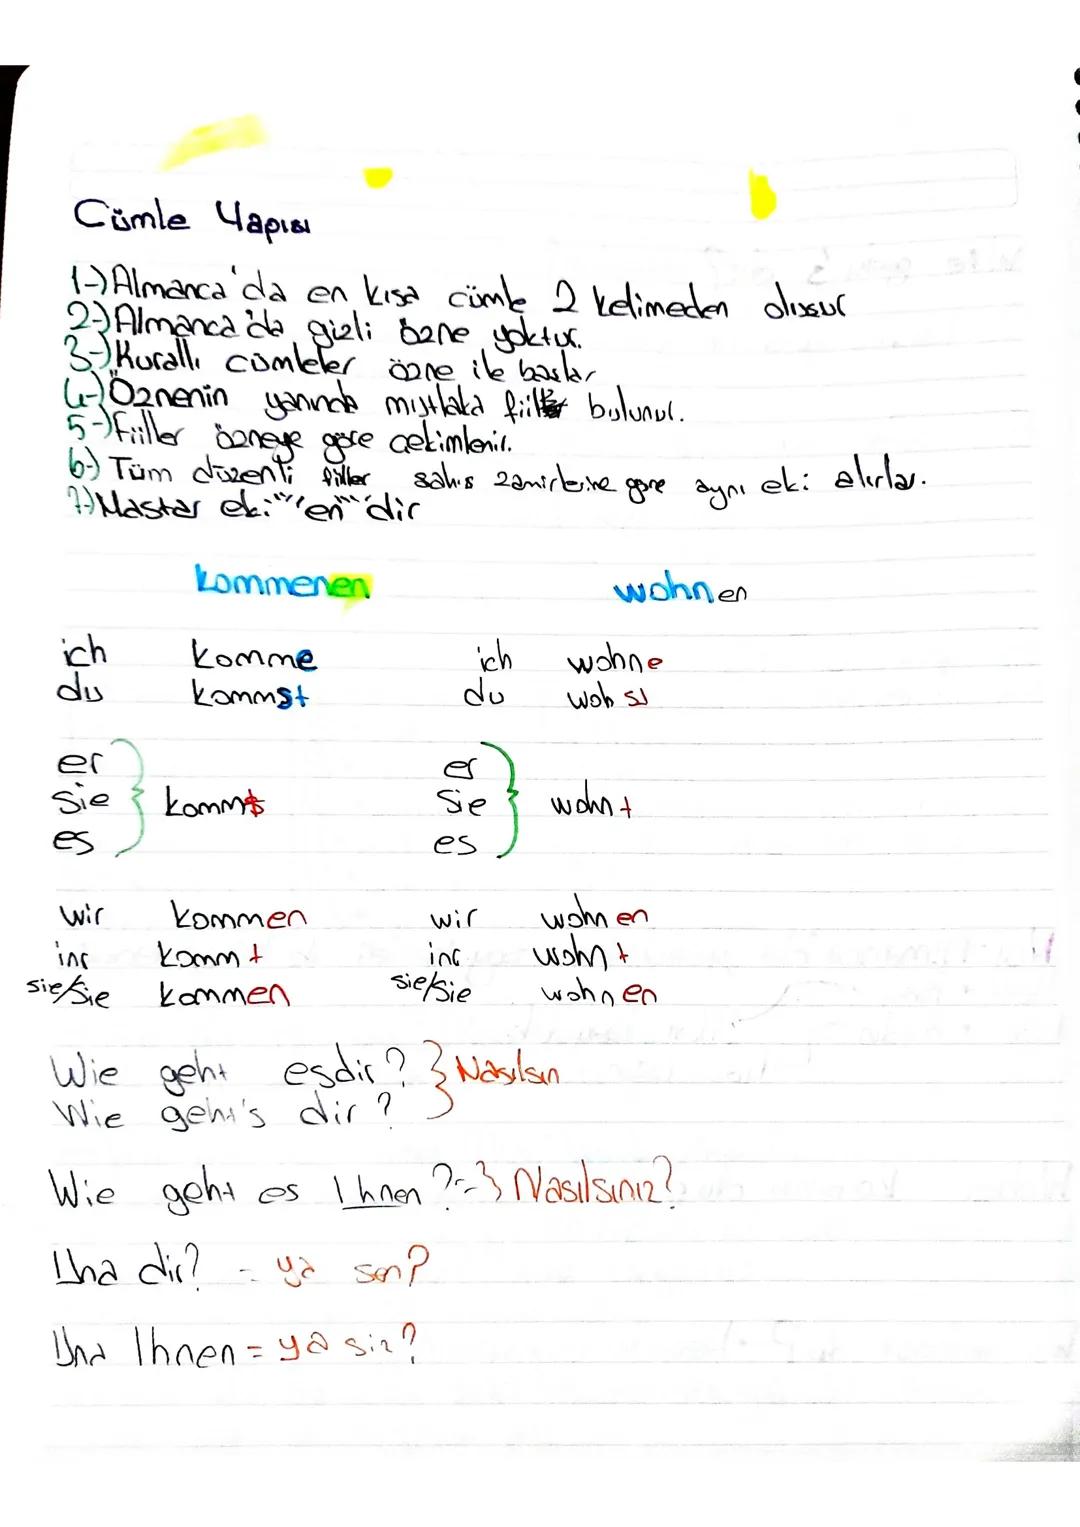 Cümle Yapısı
1-) Almanca'da en kısa cümle 2 kelimeden oluşur
2-) Almanca'da gizli özne yoktur.
3-) Kurallı cümleler özne ile başlar
4-) Öznenin yanında mutlaka fiil bulunur.
5-) Fiiller özneye göre çekimlenir.
6-) Tüm düzenli filler şahıs zamirlerine göre aynı eki alırlar.
7-) Mastar eki "en" dir
kommenen wohnen
ich komme ich wohne
du kommst du woh st
er er
sie kommt sie wohnt
es es
wir kommen wir wohnen
inr kommt inr wohnt
sie/Sie kommen sie/Sie wohnen
Wie geht esdir? } Nasılsın
Wie geht's dir?
Wie geht es Ihnen? = } Nasılsınız?
Und dir? = ya sen?
Und Ihnen = ya siz?